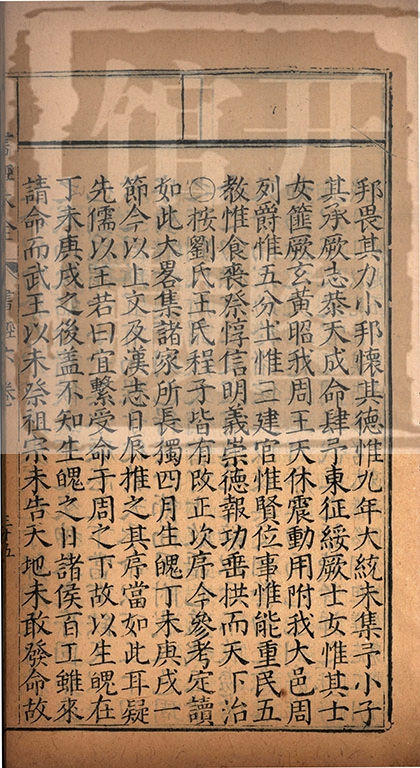 邦畏其力小邦懷其德惟九年大統未集予小子
其承厥志恭天成命肆予東征綏厥士女惟其士
女篚厥玄黃昭我周王天休震動用附我大邑周
列爵惟五分土惟三建官惟賢位事惟能重民五
教惟食喪祭惇信明義崇德報功垂拱而天下治
○按劉氏王氏程子皆有改正次序今參考定讀
如此大畧集諸家所長獨四月生魄丁未庚戌一
節今以上文及漢志日辰推之其序當如此耳疑
先儒以王若曰宜繫受命于周之下故以生魄在
丁未庚戌之後盖不知生魄之日諸侯百工雖來
請命而武王以未祭祖宗未告天地未敢發命故
書經大全
書經六卷
三十五